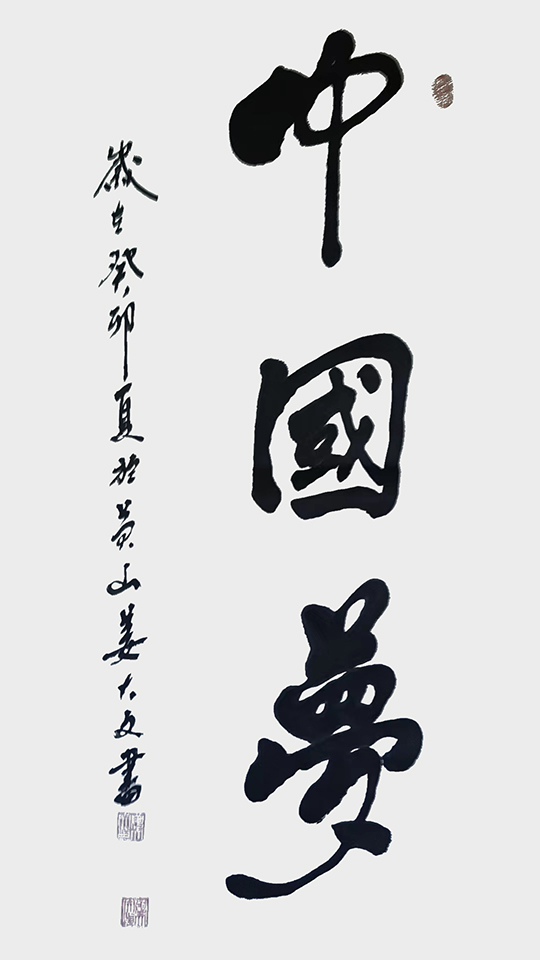 中國夢
歲在癸卯夏於黄山姜大文書